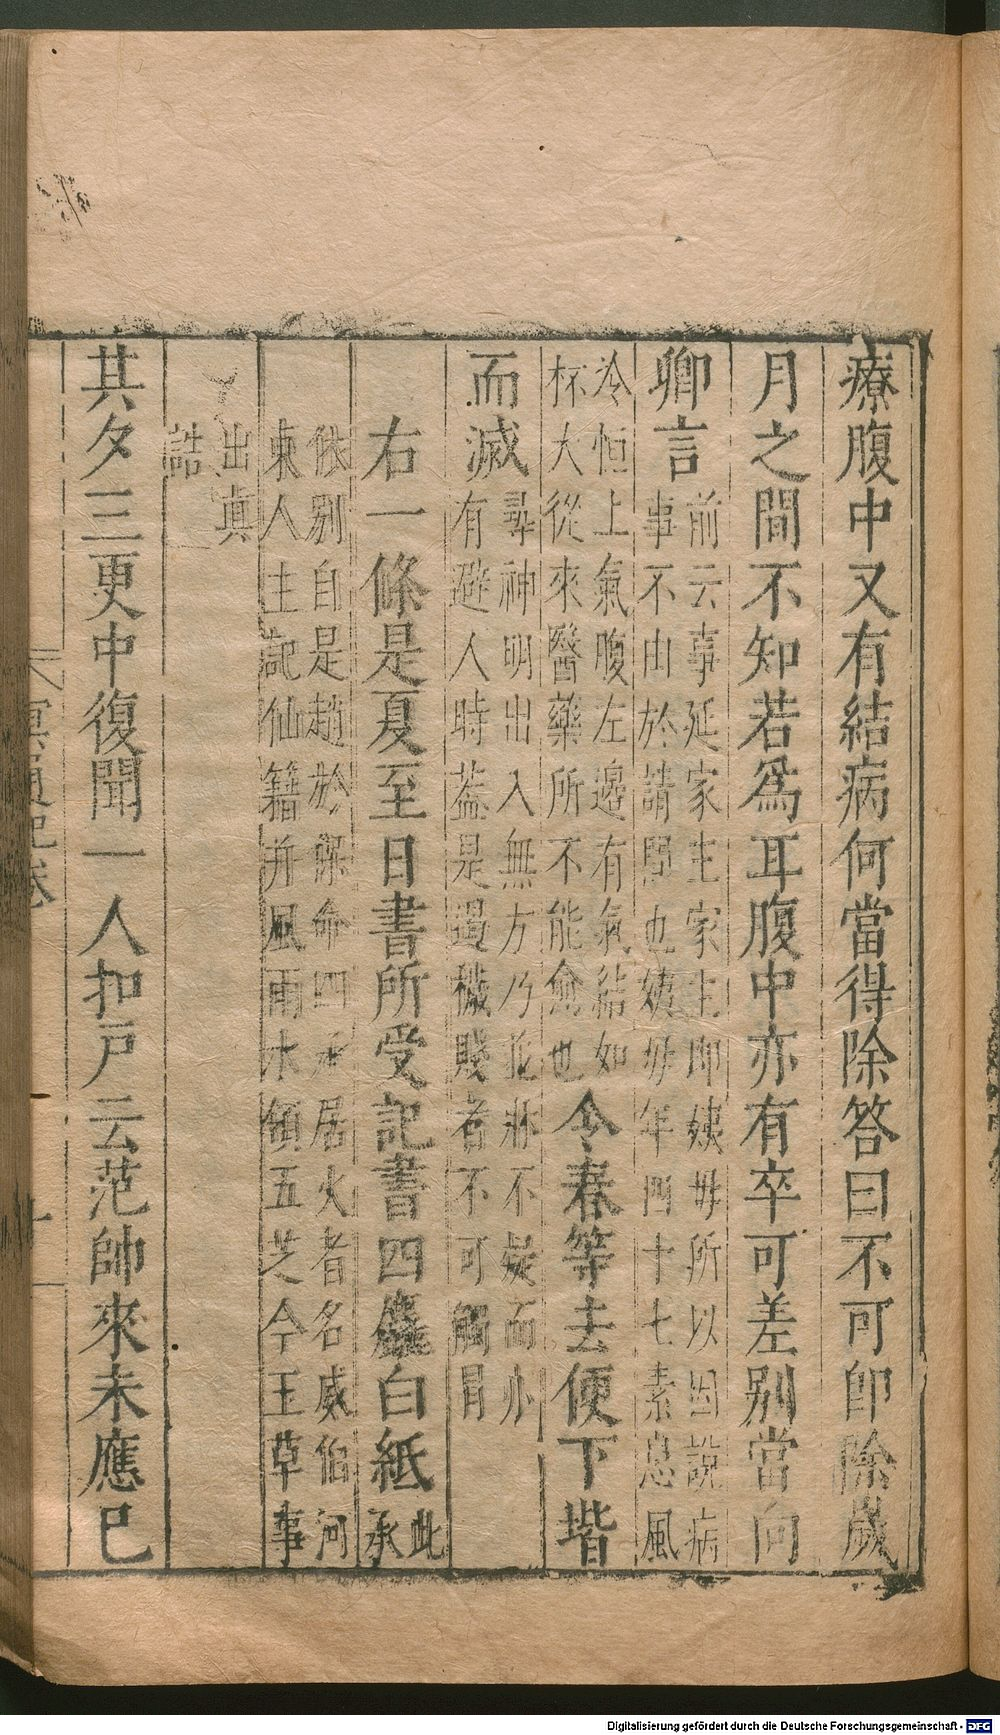 療腹中又有結病何當得除答曰不可卽除歲
月之間不知若爲耳腹中亦有卒可差別當向
卿言
前云事延家主家主卽姨母所以因說病
事不由於請問也姨母年四十七素患風
冷恒上氣腹左邊有氣結如
杯大從來醫藥所不能愈也
令春等去便下堦
而滅
尋神明出入無方乃非牀不疑而小
有避人時葢是遇穢賤者不可觸冐
右一條是夏至日書所受記書四麤白紙
此
承
佚別自是趙於保命四丞居火者名威伯河
東人主記仙籍并風雨水領五芝今玉草事
出真
誥
其夕三更中復聞一人扣戸云范帥來未應巳
冥通記卷
Digitalisierung gefördert durch die Deutsche Forschungsgemeinschaft - DFG